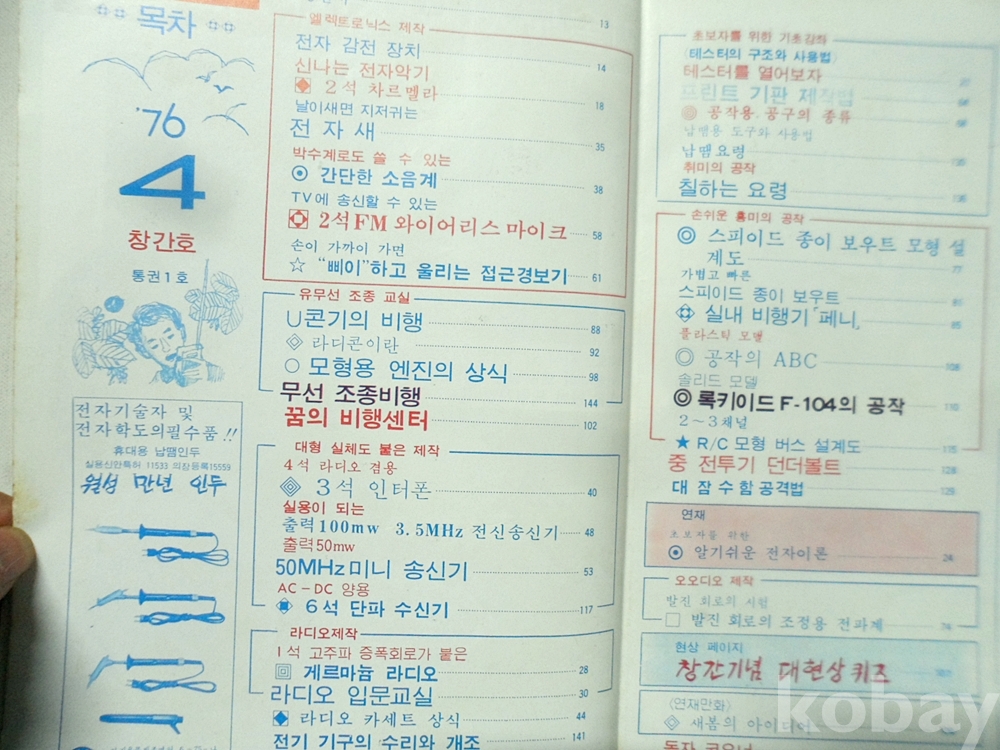 목차
'76
4
창간호
통권1호
전자기술자 및
전자학도의필수품!!
휴대용 납땜인두
실용신안특허 11533 의장등록15559
월성 만년 인두
13
엘렉트로닉스 제작
전자 감전 장치 14
신나는 전자악기
2석 차르멜라 18
날이새면 지저귀는
전자새 35
박수계로도 쓸 수 있는
간단한 소음계 38
TV에 송신할 수 있는
2석FM와이어리스마이크 58
손이 가까이 가면
☆ "삐이"하고 울리는 접근경보기 61
유무선 조종 교실
U콘기의 비행 88
◇ 라디콘이란 92
○ 모형용 엔진의 상식 98
무선 조종비행 144
꿈의 비행센터 102
대형 실체도 붙은 제작
4석 라디오 겸용
3석 인터폰 40
실용이 되는
출력100mw 3.5MHz 전신송신기 48
출력50mw
50MHz미니 송신기 53
AC-DC 양용
6석 단파 수신기 117
라디오제작
1석 고주파 증폭회로가 붙은
게르마늄 라디오 28
라디오 입문교실 30
라디오 카세트 상식 44
전기 기구의 수리와 개조 141
초보자를 위한 기초강좌
(테스터의 구조와 사용법)
테스터를 열어보자
프린트 기판 제작법
◎ 공작용 공구의 종류
납땜용 도구와 사용법
납땜요령
취미의 공작
칠하는 요령
손쉬운 흥미의 공작
◎ 스피이드 종이 보우트 모형 설
계도 77
가볍고 빠른
스피이드 종이 보우트 81
실내 비행기「페니」 85
플라스틱 모델
◎ 공작의 ABC 108
솔리드 모델
◎ 록키이드F-104의 공작 110
2~3채널
★ R/C모형 버스 설계도 115
중 전투기 던더볼트 128
대 잠수함공격법 129
연재
초보자를 위한
알기쉬운 전자이론 24
오오디오 제작
발진 회로의 시험
□ 발진 회로의 조정용 전파계 74
현상 페이지
창간기념 대현상퀴즈
(연재만화)
◇ 새봄의 아이디어
독자 코오너
kobay